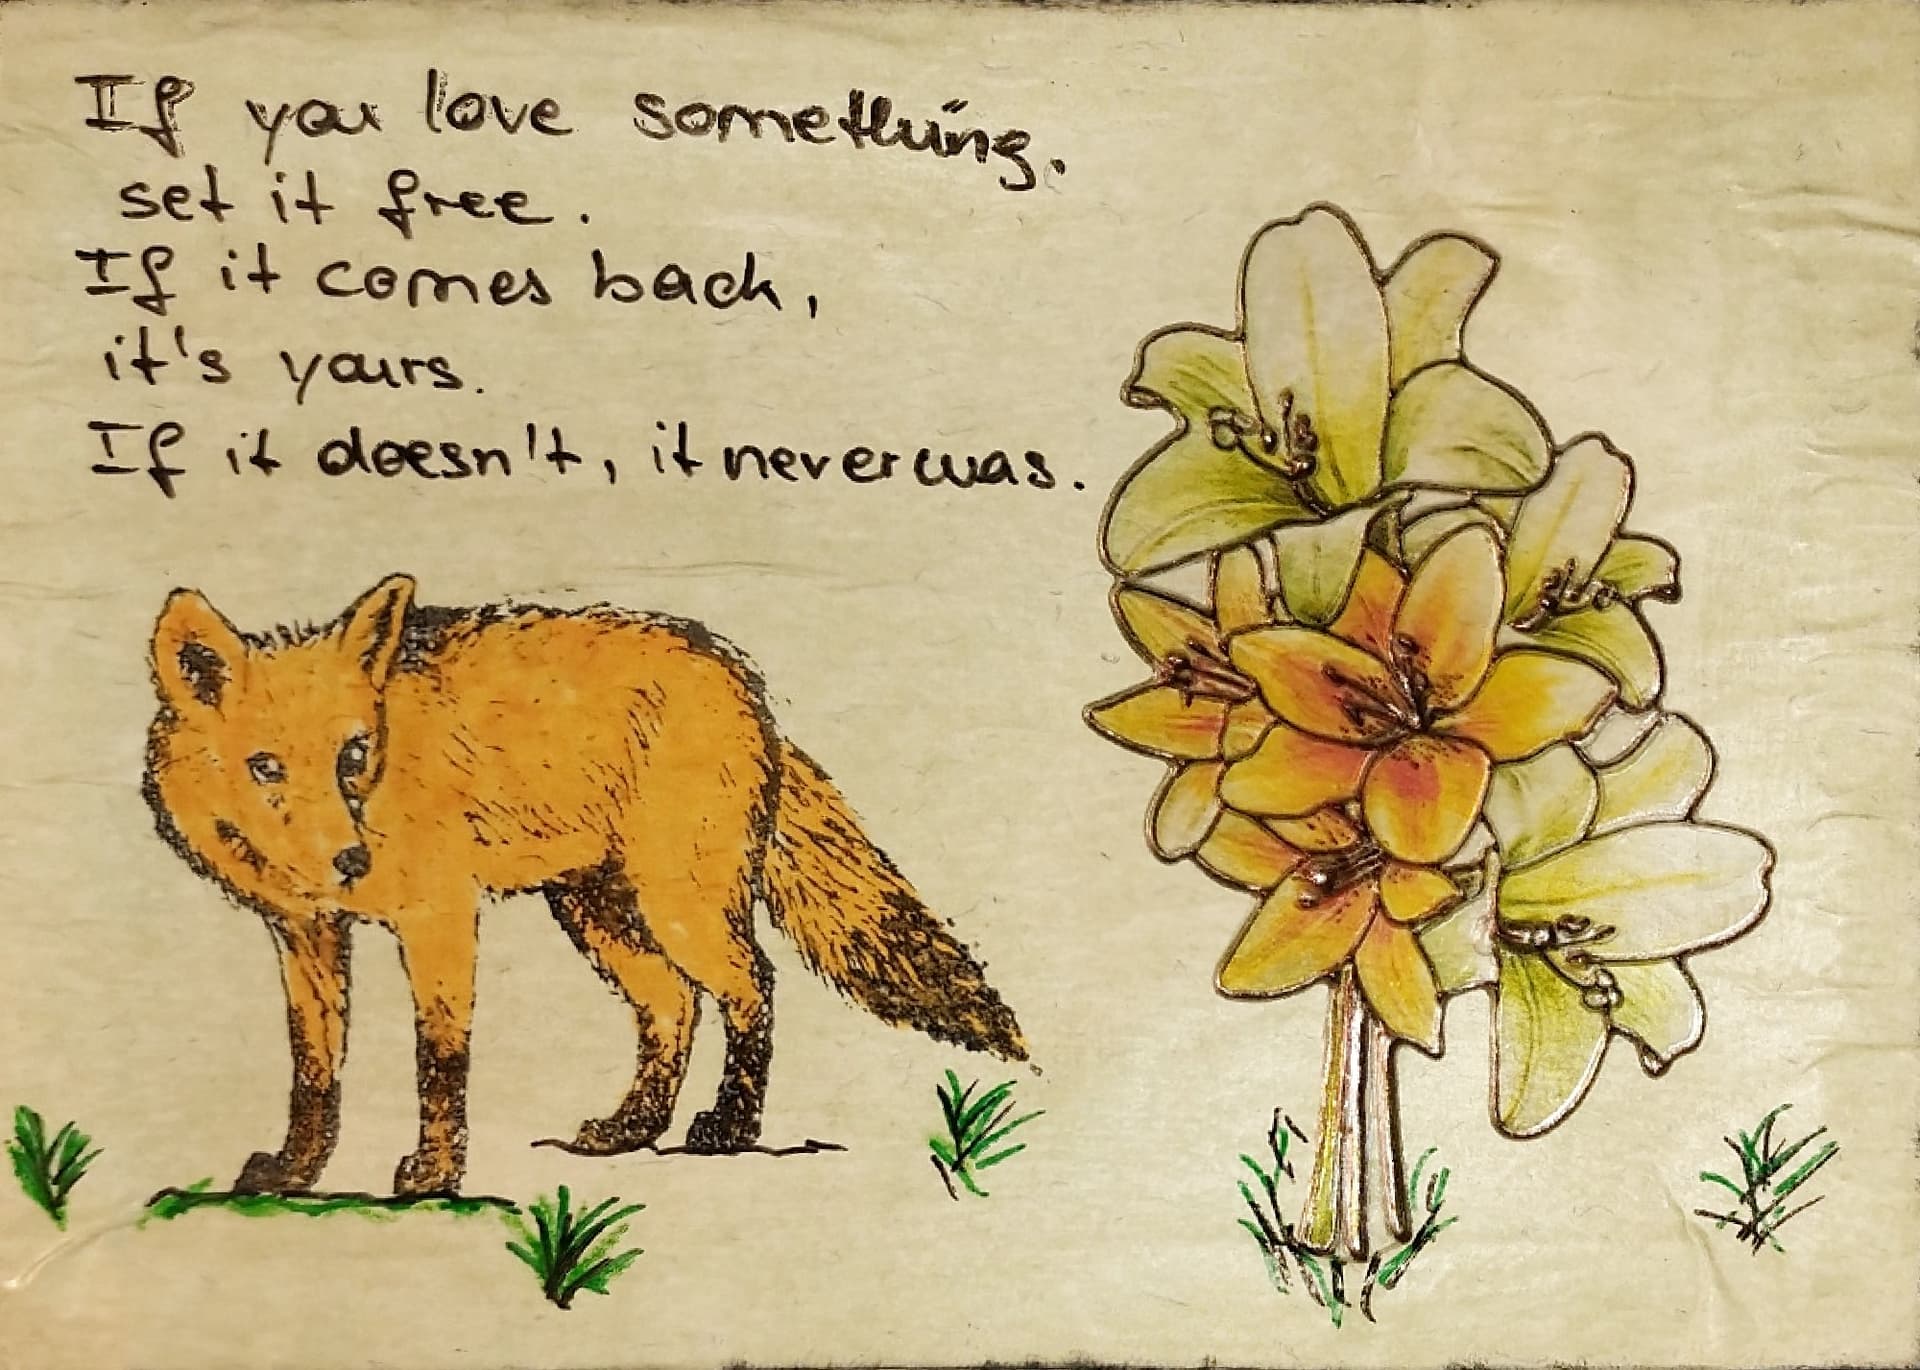 If you love something.
set it free.
If it comes back,
it's yours.
If it doesn't, it never was.